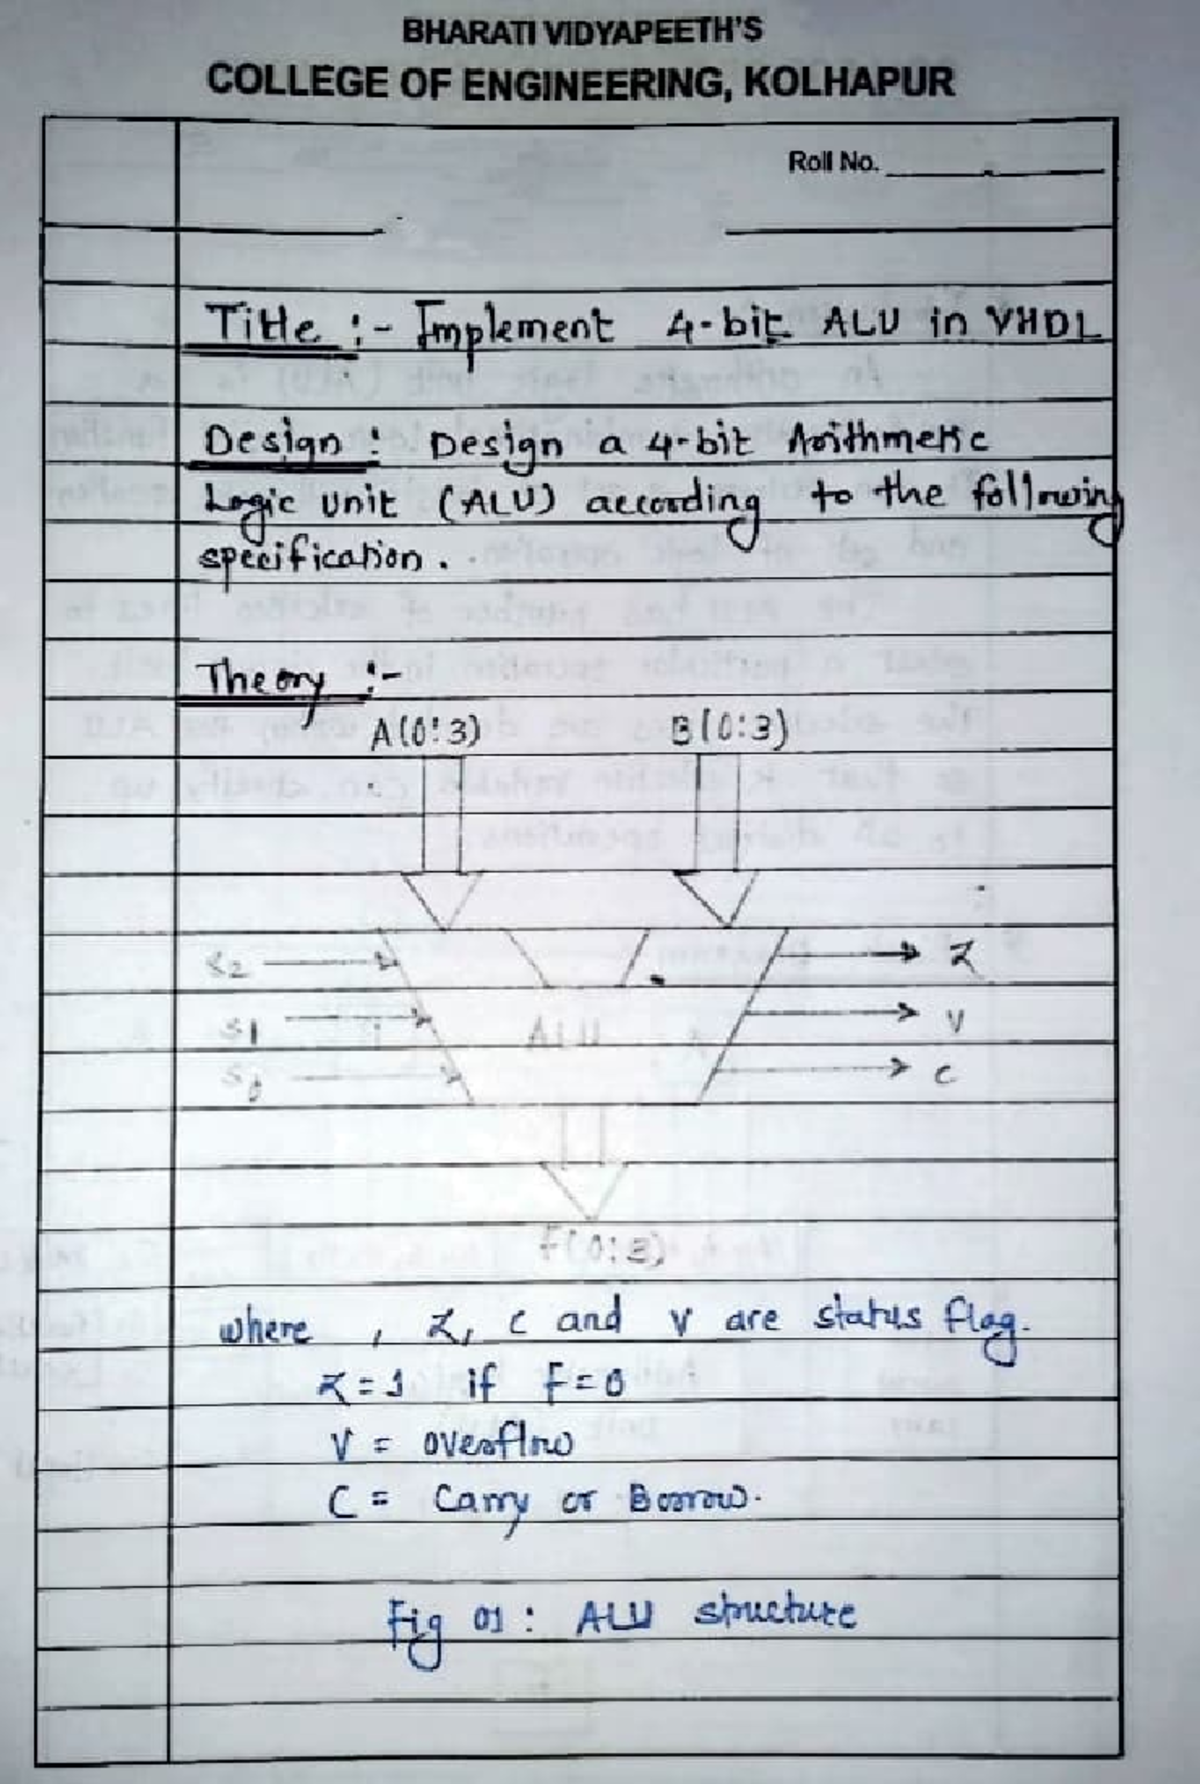 BHARATI VIDYAPEETH'S
COLLEGE OF ENGINEERING, KOLHAPUR
Roll No.
Title :- Implement 4-bit ALU in VHDL
Design : Design a 4-bit Arithmetic
Logic unit (ALU) according to the following
specification.
Theory :-
A(0:3) B(0:3)
S2 Z
S1 ALU V
S0 C
F(0:3)
where , Z, C and V are status flag.
Z = 1 if F = 0
V = overflow
C = Carry or Borrow.
Fig 01 : ALU structure